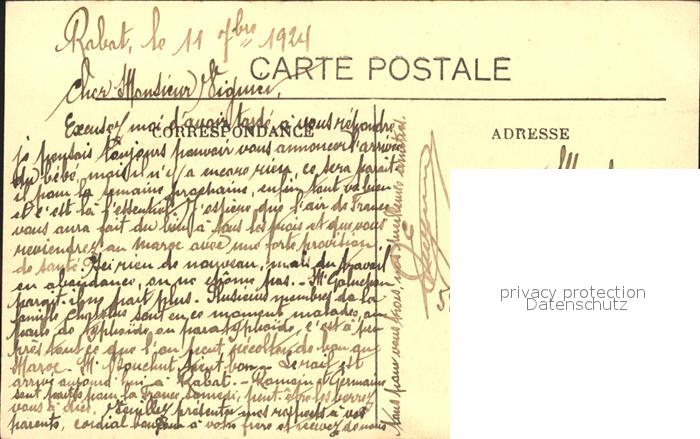 Rabat, le 11 7bre 1924
CARTE POSTALE
Cher Monsieur Viguier,
CORRESPONDANCE
ADRESSE
Excusez moi d'avoir tardé à vous répondre
je pensais toujours pouvoir vous annoncer l'arrivée
du bébé, mais il n'y a encore rien, ce sera paraît-
il pour la semaine prochaine, enfin tout va bien
et c'est là l'essentiel. J'espère que l'air de France
vous aura fait du bien à tous les trois et que vous
reviendrez au Maroc avec une forte provision
de santé. Ici rien de nouveau, mais du travail
en abondance, on ne chôme pas. - Mr
paraît-il ne part plus. - Plusieurs membres de la
famille sont en ce moment malades, ou
de typhoïde ou paratyphoïde, c'est à peu
près tout ce que l'on peut récolter de bon au
Maroc. - Mr tient bon. - est
arrivé aujourd'hui à Rabat. - Romain et Germaine
sont partis pour la France samedi, peut-être les verrez
vous à. Veuillez présenter mes respects à vos
parents, cordial bonjour à votre frère et recevez de nous
pour vous trois, nos meilleures amitiés.
privacy protection
Datenschutz